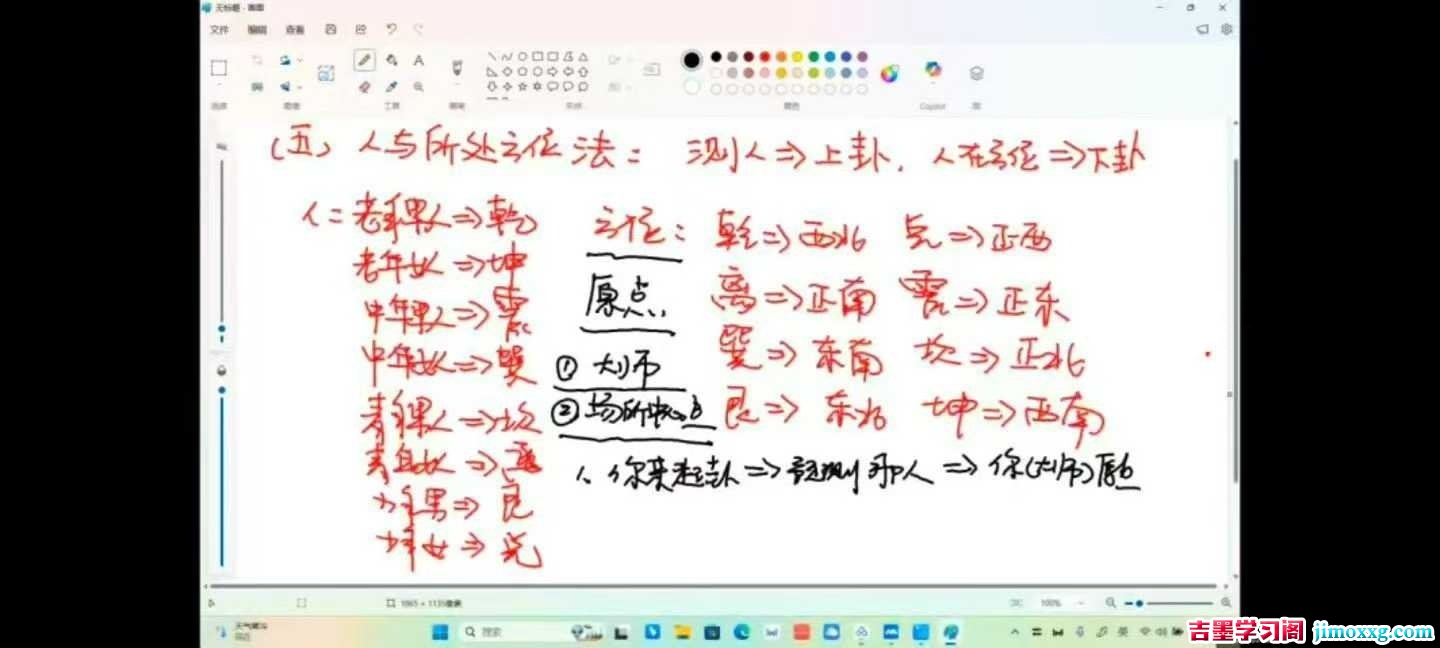 无标题 - 画图
文件 编辑 查看
工具
形状
颜色
Copilot
(五) 人与所处方位法: 测人⇒上卦, 人在方位⇒下卦
人: 老年男人⇒乾
老年女⇒坤
中年男人⇒震
中年女⇒巽
青年男人⇒坎
青年女⇒离
少年男⇒艮
少年女⇒兑
方位: 乾⇒西北 兑⇒正西
离⇒正南 震⇒正东
巽⇒东南 坎⇒正北
艮⇒东北 坤⇒西南
原点:
① 大师
② 场所中心点
1、你来起卦⇒预测那人⇒你(大师)原点
100%
搜索
英
吉墨学习阁 jimoxxg.com